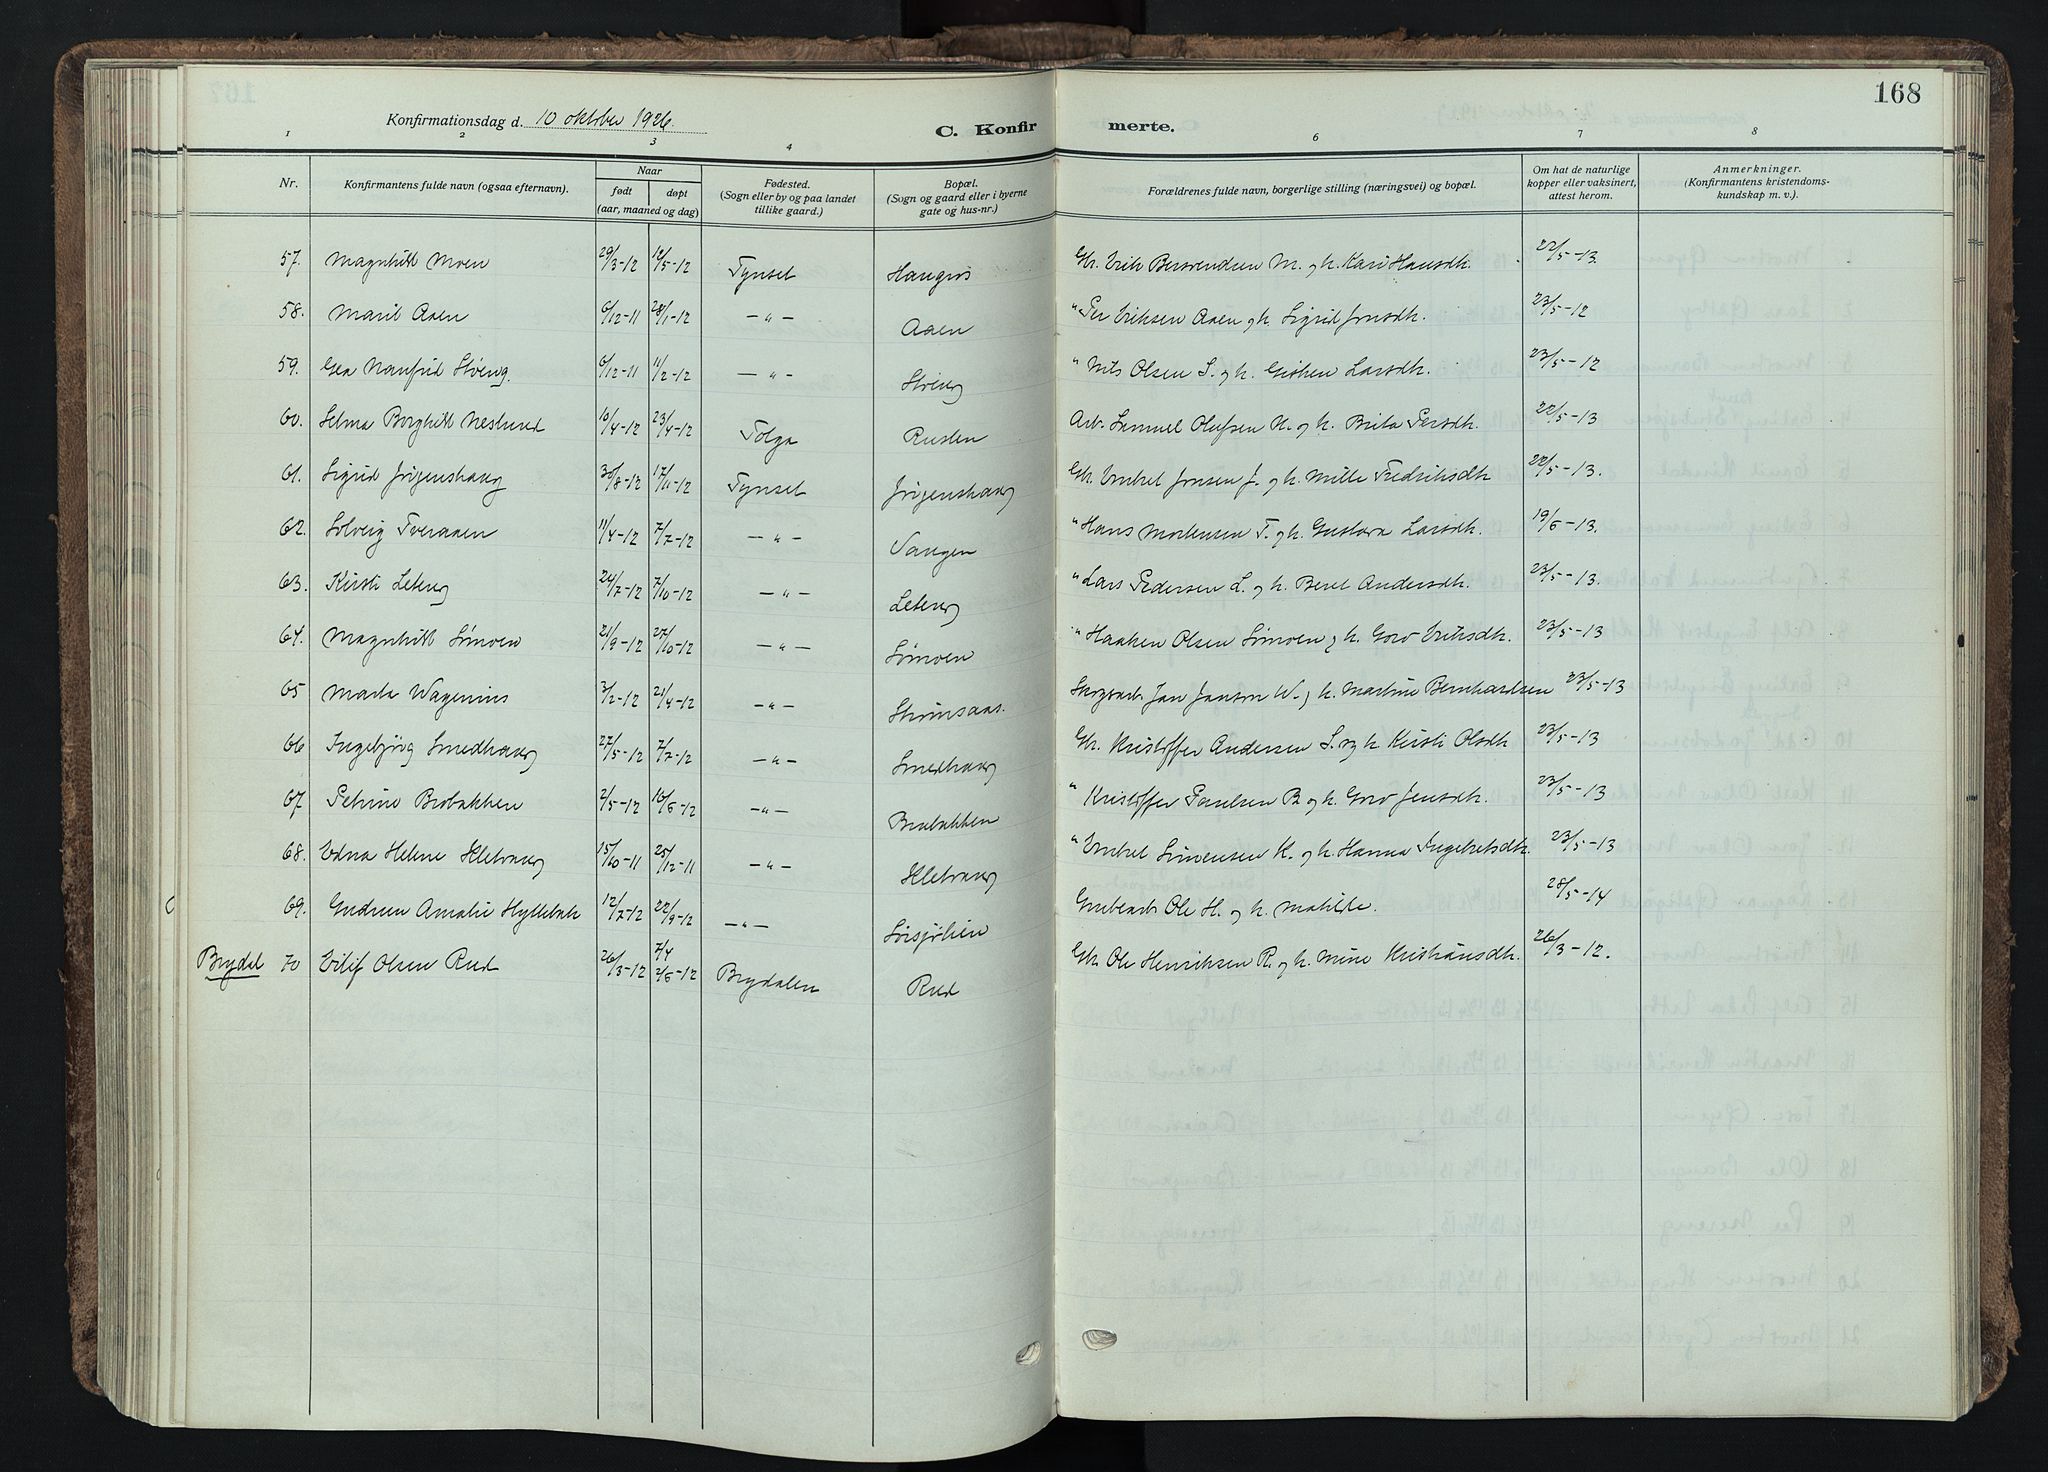 168
Konfirmationsdag d. 10 oktober 1926.
C. Konfirmerte.
1 2 3 4 6 7 8
Nr. Konfirmantens fulde navn (ogsaa efternavn). Naar født døpt (aar, maaned og dag) Fødested. (Sogn eller by og paa landet tillike gaard.) Bopæl. (Sogn og gaard eller i byerne gate og hus-nr.) Forældrenes fulde navn, borgerlige stilling (næringsvei) og bopæl. Om hat de naturlige kopper eller vaksinert, attest herom. Anmerkninger. (Konfirmantens kristendoms-kundskap m. v.).
57. Magnhild Moen 29/3-12 12/5-12 Tynset Haugros Gbr. Erik Berntsen M. og h. Kari Hansdtr. 22/5-13.
58. Marit Aaen 6/12-11 28/1-12 -"- Aaen " Per Eriksen Aaen og h. Sigrid Jonsdtr. 23/5-12
59. Gea Nanfrid Støeng 6/12-11 11/2-12 -"- Støeng " Nils Olsen S. og h. Larsdtr. 23/5-12
60. Selma Borghild Neslund 10/4-12 23/4-12 Tolga Rusten Arb. Samuel Olufsen N. og h. Brita Persdtr. 22/5-13
61. Sigrid Jørgenshaug 30/8-12 17/11-12 Tynset Jørgenshaug Gbr. Embret Jonsen J. og h. Mille Fredriksdtr 22/5-13.
62. Solveig Tveraaen 11/4-12 7/7-12 -"- Vangen " Hans Mortensen T. og h. Gustava Larsdtr. 19/6-13.
63. Kirsti Leteng 24/7-12 7/10-12 -"- Leteng " Lars Pedersen L. og h. Beret Andersdtr. 23/5-13.
64. Magnhild Simoen 21/9-12 27/10-12 -"- Simoen " Haaken Olsen Simoen og h. Goro Eriksdtr. 23/5-13
65 Marta Wagenius 3/2-12 21/4-12 -"- Strømsaas. Skogsarb. Jan Janson W. og h. Martine Bernhardsen 23/5-13
66 Ingebjørg Smedhaug 27/5-12 7/7-12 -"- Smedhaug Gbr. Kristoffer Andersen S. og h Kirsti Olsdtr 23/5-13
67. Petrine Brobakken 2/5-12 16/6-12 -"- Brobakken " Kristoffer Paulsen B. og h. Goro Jensdtr. 23/5-13
68. Edna Helene Kletvang 15/10-11 25/12-11 -"- Kletvang " Embret Simensen K. og h. Hanna Ingebretsdtr. 23/5-13
69. Gudrun Amalie Hyllebak 12/7-12 22/9-12 -"- Grubearb. Ole H. og h. Matilde. 28/5-14
Brydal 70 Eilif Olsen Rud 26/3-12 7/4 2/6-12 Brydalen Rud Gbr. Ole Henriksen R. og h. Mine Kristiansdtr. 26/3-12.